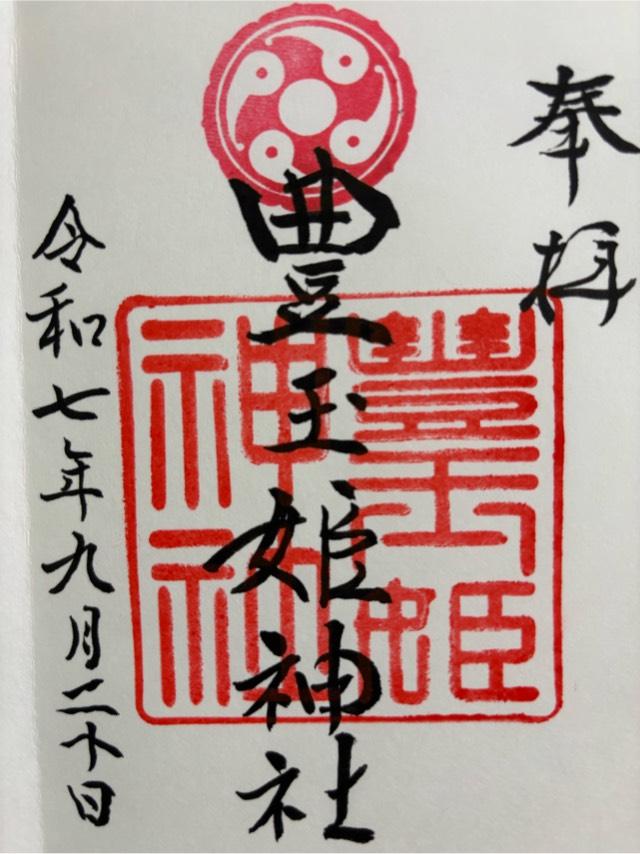 奉拝
豊玉姫神社
豊玉姫
神社
令和七年九月二十日